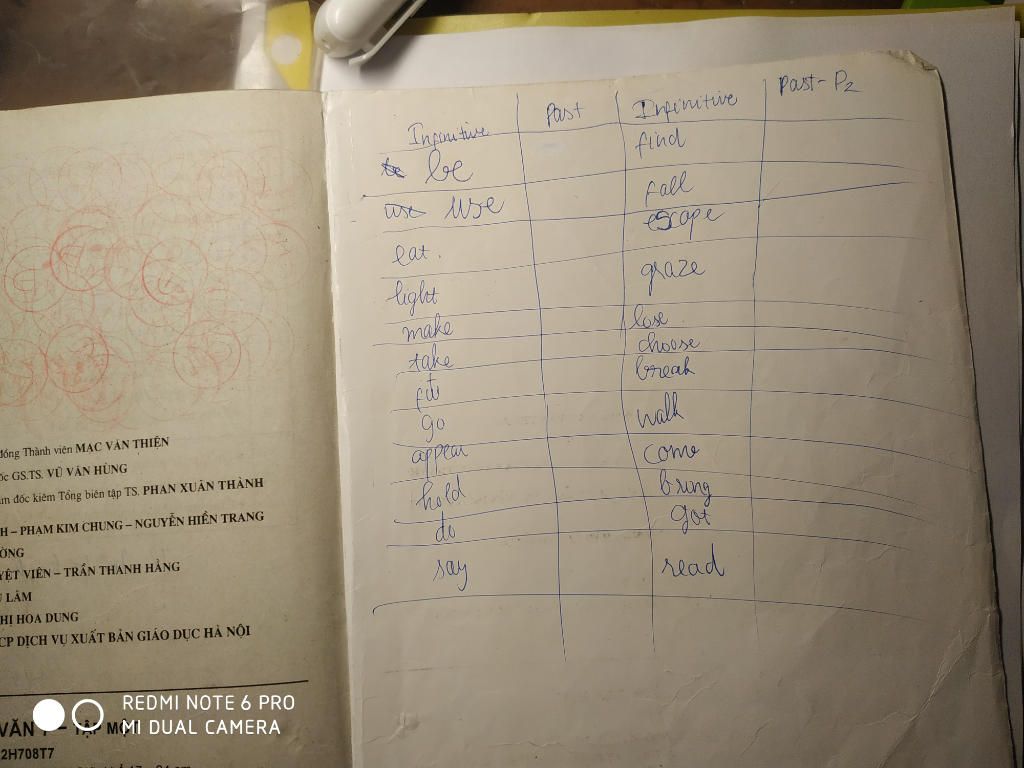 Infinitive Past Infinitive Past - P2
be be find
use use fall
eat. escape
light graze
make lose
take choose
fit break
go walk
appear come
hold bring
do got
say read
đồng Thành viên MẠC VĂN THIỆN
ốc GS.TS. VŨ VĂN HÙNG
ám đốc kiêm Tổng biên tập TS. PHAN XUÂN THÀNH
H – PHẠM KIM CHUNG – NGUYỄN HIỀN TRANG
ỜNG
YỆT VIÊN – TRẦN THANH HẰNG
LÂM
HỊ HOA DUNG
CP DỊCH VỤ XUẤT BẢN GIÁO DỤC HÀ NỘI
VĂN – TẬP MỘT
2H708T7
REDMI NOTE 6 PRO
MI DUAL CAMERA